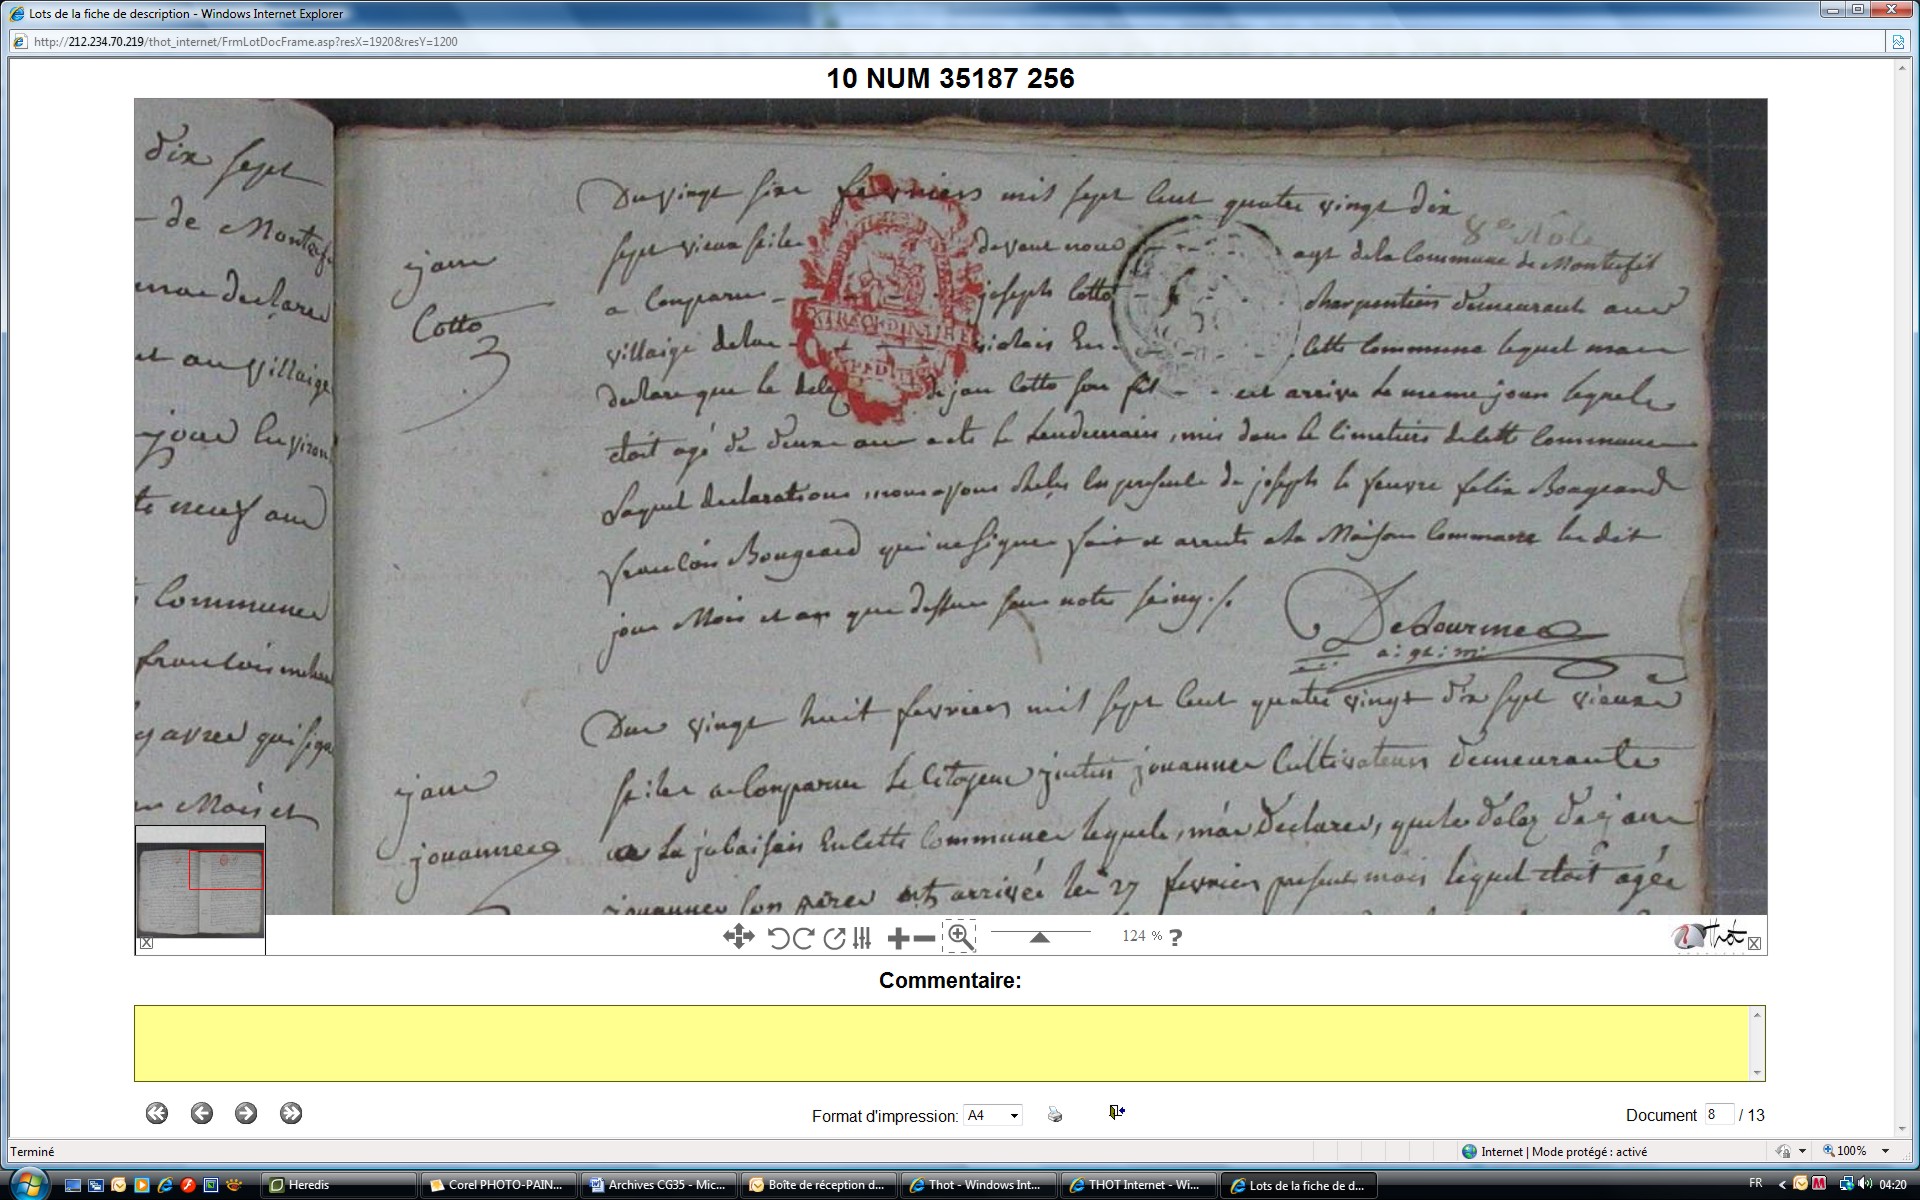 Lots de la fiche de description - Windows Internet Explorer
http://212.234.70.219/thot_internet/FrmLotDocFrame.asp?resX=1920&resY=1200
10 NUM 35187 256
dix sept
de Monterfi
mae declare
et au villaige
jour
te neuf ans
Commune
francois
qui signe
Mois et
Du vingt six fevrier mil sept cent quatre vingt dix
8e Role
sept vieux stile devant nous agt de la Commune de Monterfil
a Comparu joseph Cotto charpentier demeurant au
villaige de la En cette Commune lequel
declare que le de jan Cotto son fil est arrivé le meme jour lequel
etoit agé de deux an le lendemain, mis dans le cimetiere de cette Commune
Laquel declaration en presence de joseph le feuvre felix Bougeard
francois Bougeard qui ne signe fait et arrete a la Maison Commune les dit
jour Mois et an que dessus sous notre seing
Delourme
a: gt: m:
jan
Cotto
Du vingt huit fevrier mil sept cent quatre vingt dix sept vieux
stile a Comparu Le Citoyen jouanne Cultivateur demeurante
a La en cette Commune lequel, m'a déclaré, que le déces de jan
jouanne son pere est arrivée le 27 fevrier present mois lequel etoit agée
jan
jouanne
124 % ?
Thot
Commentaire:
Format d'impression: A4
Document 8 / 13
Terminé
Internet | Mode protégé : activé
100%
Heredis
Corel PHOTO-PAIN...
Archives CG35 - Mic...
Boîte de réception d...
Thot - Windows Int...
THOT Internet - Wi...
Lots de la fiche de d...
FR
04:20